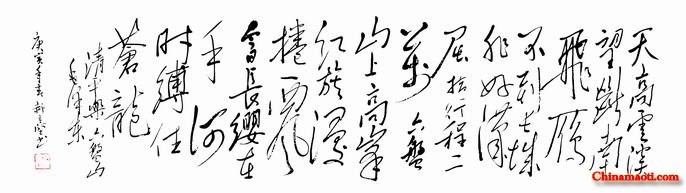 天高雲淡
望斷南
飛雁
不到长城
非好漢
屈指行程二
萬 六盤
山上高峯
红旗漫
捲西風
今日長纓在
手 何
时縛住
蒼龍
清平樂 六盤山
毛泽东
庚寅年
Chinamaoti.com